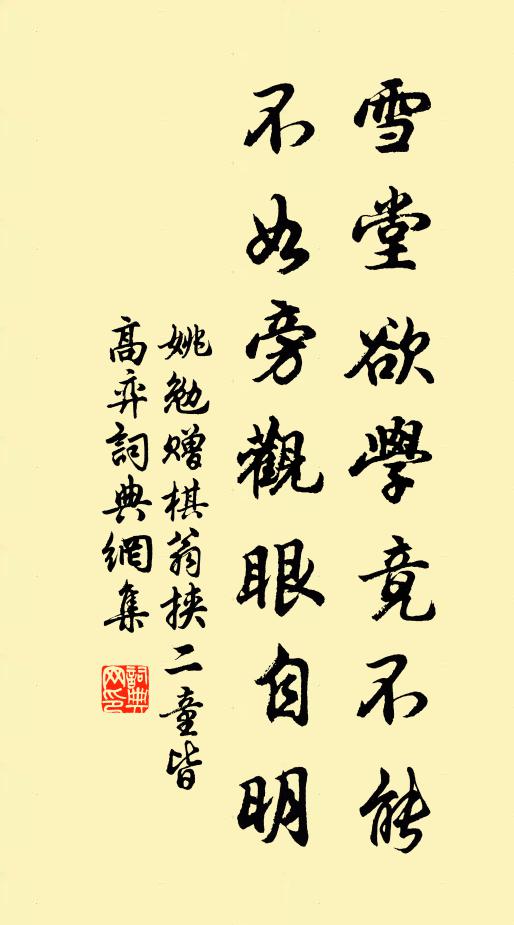 雪堂欲學竟不能
不如旁觀眼自明
姚勉贈棋翁挾二童皆
高弈詞典網集
詞典网印